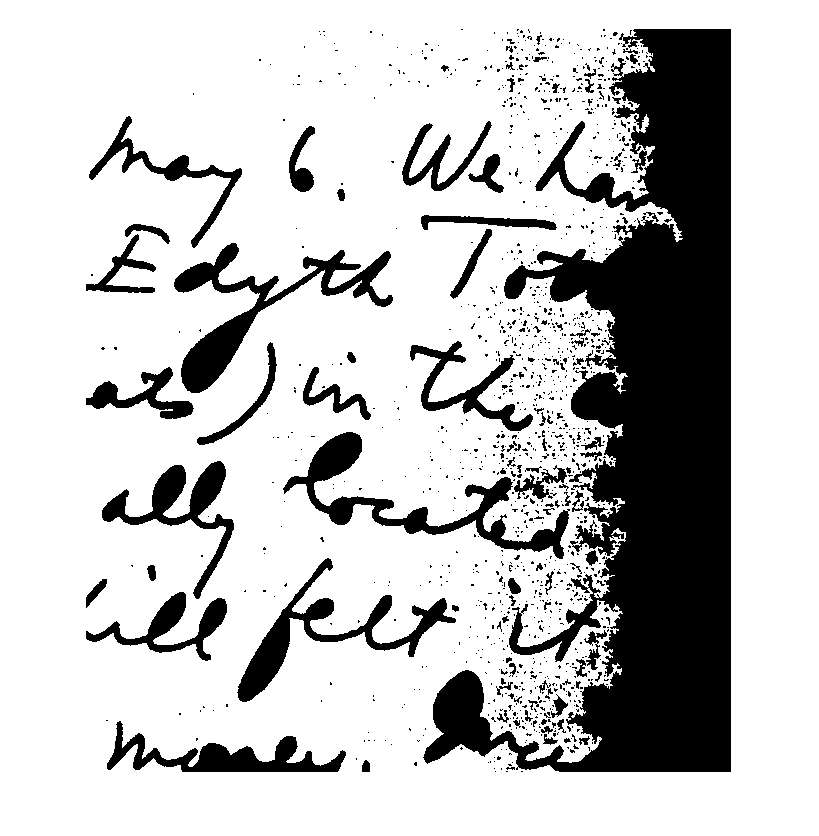 May 6. We
Edyth
ats) in the
ally located
ill felt it
money. Once